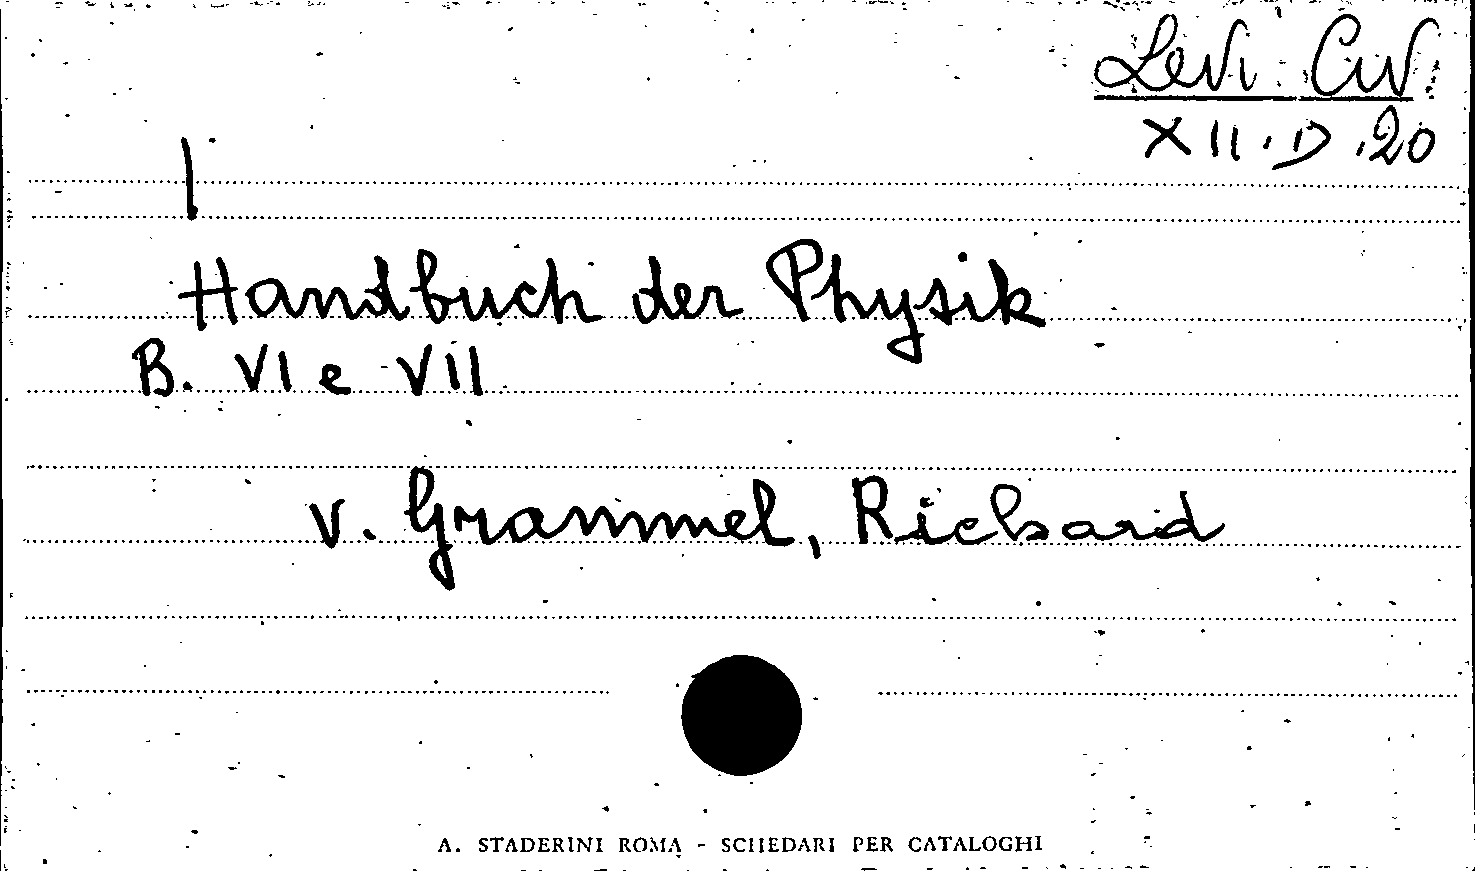 Levi Civ.
XII. D. 20
Handbuch der Physik
B. VI e VII
v. Grammel, Richard
A. STADERINI ROMA - SCHEDARI PER CATALOGHI